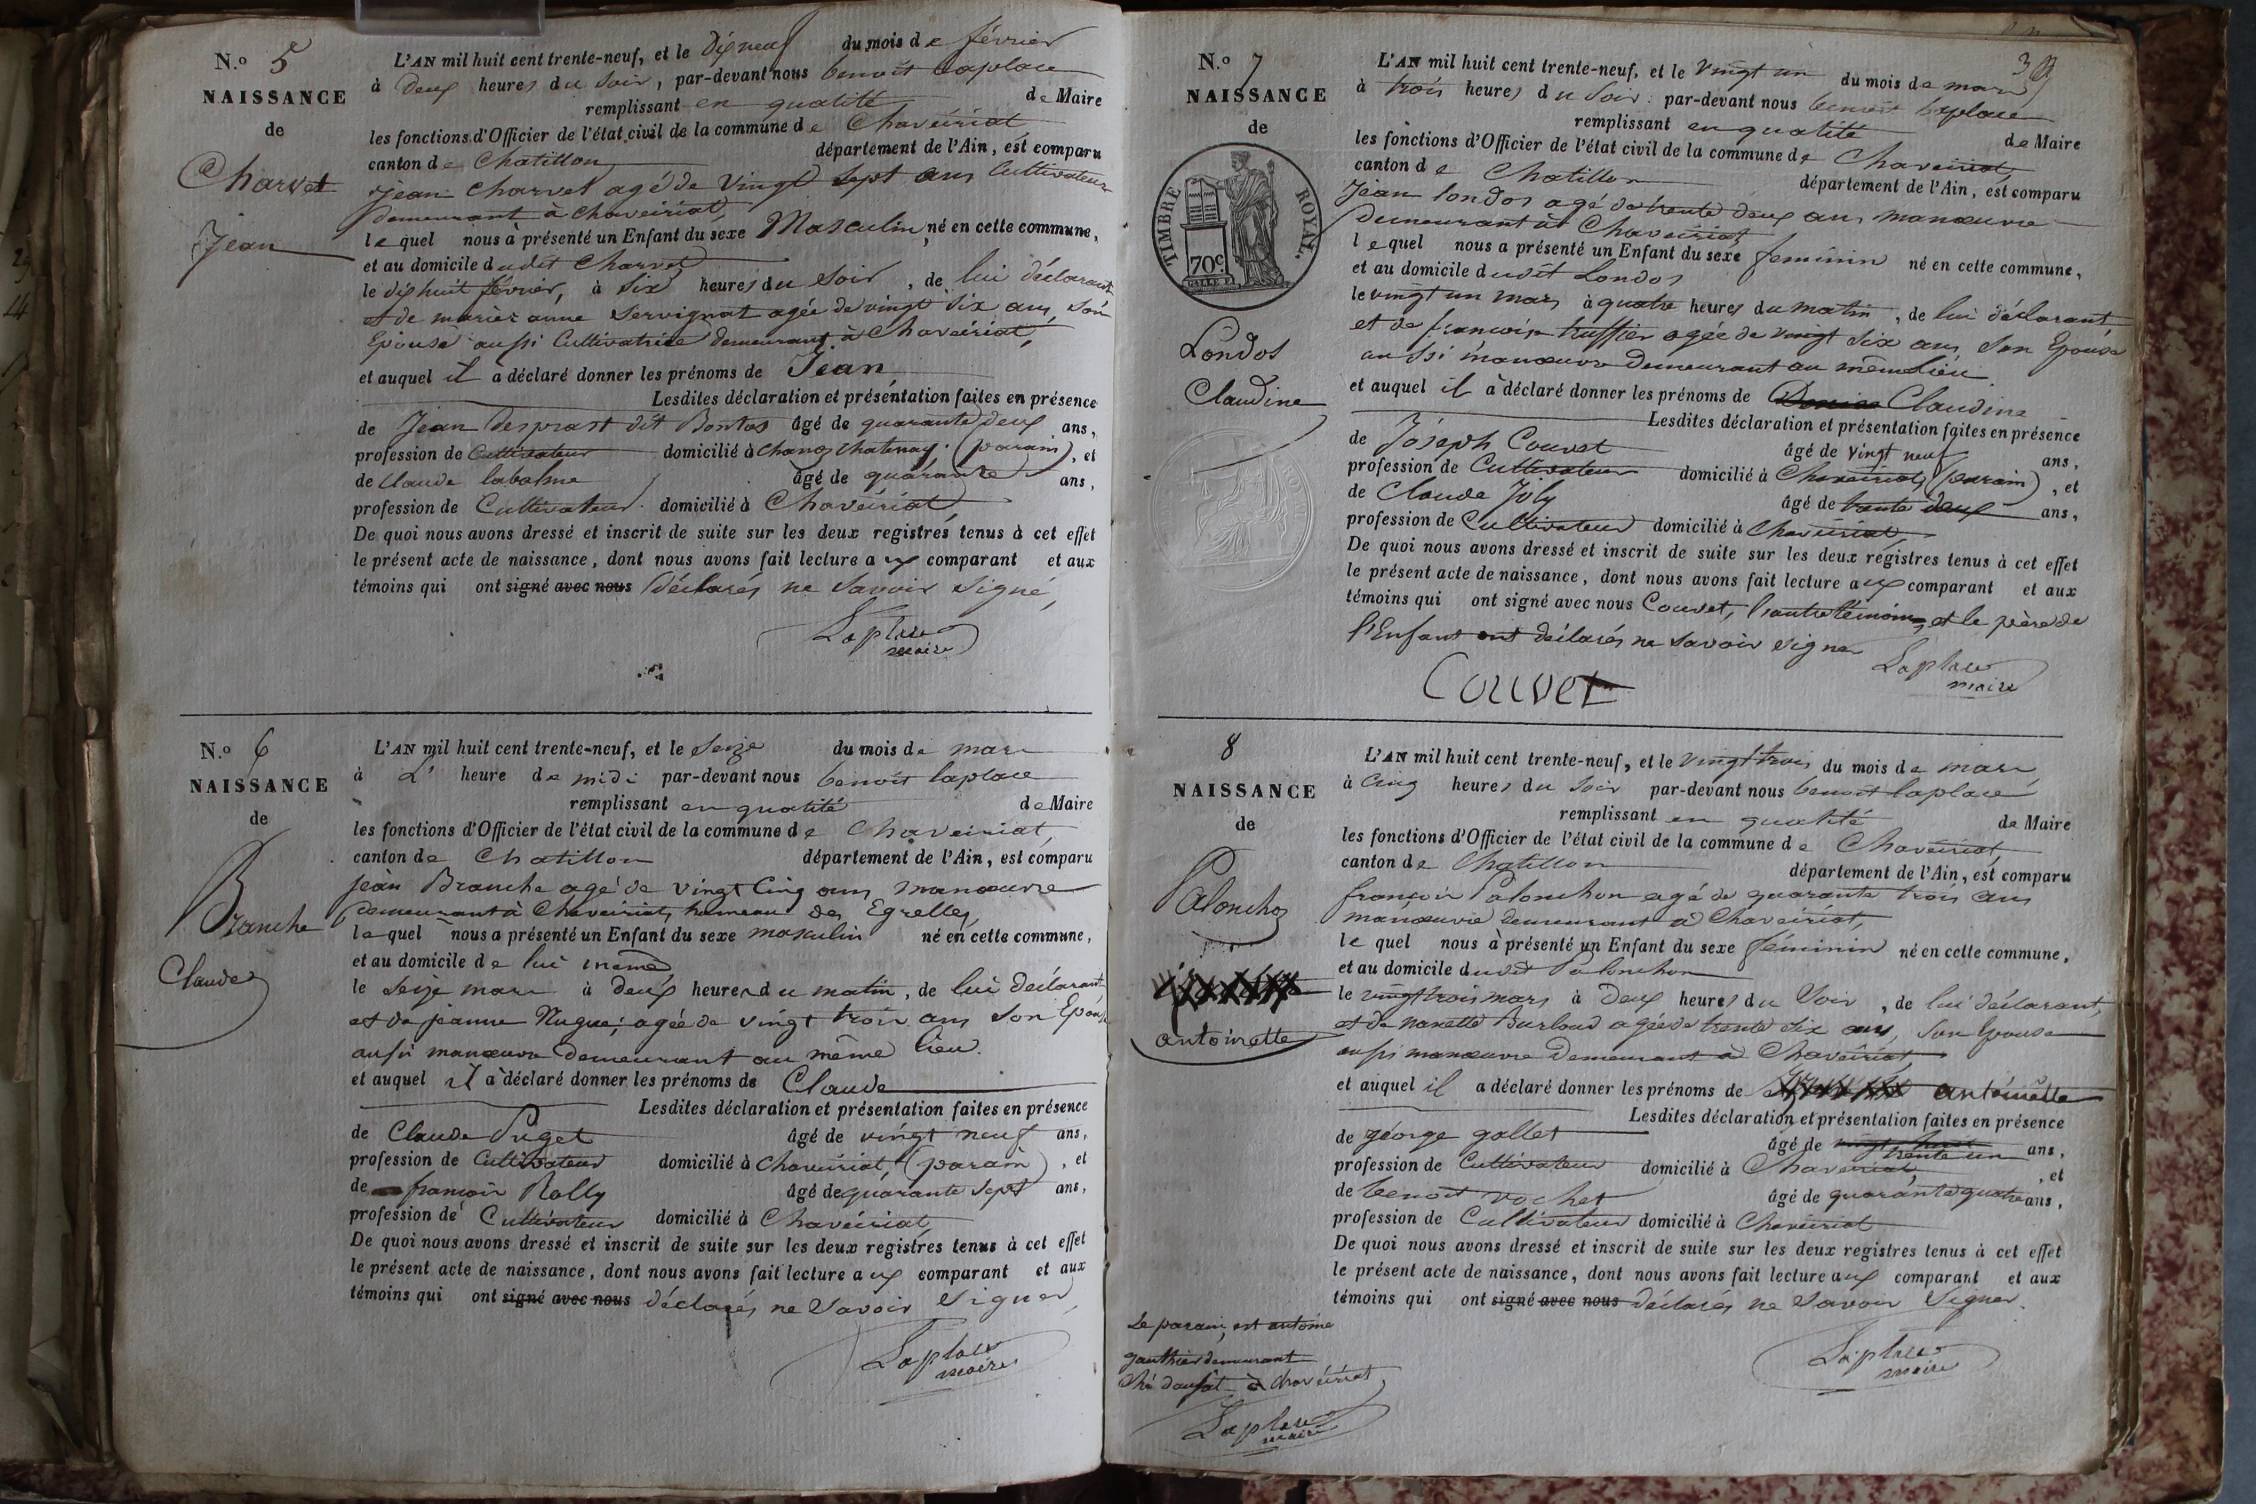 N.º 5
NAISSANCE
de
Charvet
Jean
L'AN mil huit cent trente-neuf, et le dix neuf du mois de février
à deux heures du soir, par-devant nous benoit laplace
remplissant en qualité de Maire
les fonctions d'Officier de l'état civil de la commune de Chaveiriat
canton de Chatillon département de l'Ain, est comparu
jean Charvet agé de vingt sept ans Cultivateur
demeurant à Chaveiriat,
lequel nous à présenté un Enfant du sexe Masculin né en cette commune,
et au domicile dudit Charvet
le dix huit février, à six heures du soir, de lui déclarant
et de marie anne Servignat agée de vingt six ans, son
Epouse aussi Cultivatrice demeurant à Chaveiriat,
et auquel il à déclaré donner les prénoms de Jean
Lesdites déclaration et présentation faites en présence
de Jean Desprast dit Bontos âgé de quarante deux ans,
profession de Cultivateur domicilié à chanoz chatenay (parain), et
de Claude labalme âgé de quarante ans,
profession de Cultivateur domicilié à Chaveiriat,
De quoi nous avons dressé et inscrit de suite sur les deux registres tenus à cet effet
le présent acte de naissance, dont nous avons fait lecture aux comparant et aux
témoins qui ont signé avec nous déclarés ne savoir signé,
Laplace
maire
N.º 6
NAISSANCE
de
Branche
Claude
L'AN mil huit cent trente-neuf, et le seize du mois de mars
à L' heure de midi par-devant nous benoit laplace
remplissant en qualité de Maire
les fonctions d'Officier de l'état civil de la commune de Chaveiriat,
canton de Chatillon département de l'Ain, est comparu
jean Branche agé de vingt Cinq ans manoeuvre
demeurant à Chaveiriat, hameau des Egrelles,
lequel nous a présenté un Enfant du sexe masculin né en cette commune,
et au domicile de lui même
le seize mars à deux heures du matin, de lui déclarant
et de jeanne Nugue, agée de vingt trois ans son Epouse
aussi manoeuvre demeurant au même lieu.
et auquel il a déclaré donner les prénoms de Claude
Lesdites déclaration et présentation faites en présence
de Claude Puget âgé de vingt neuf ans,
profession de Cultivateur domicilié à chaveiriat, (parain), et
de françois Rolly âgé de quarante sept ans,
profession de Cultivateur domicilié à Chaveiriat,
De quoi nous avons dressé et inscrit de suite sur les deux registres tenus à cet effet
le présent acte de naissance, dont nous avons fait lecture aux comparant et aux
témoins qui ont signé avec nous déclarés ne savoir signer,
Laplace
maire
N.º 7
NAISSANCE
de
TIMBRE ROYAL.
70c.
Londos
Claudine
L'AN mil huit cent trente-neuf, et le vingt un du mois de mars
à trois heures du soir par-devant nous benoit laplace
remplissant en qualité de Maire
les fonctions d'Officier de l'état civil de la commune de Chaveiriat,
canton de Chatillon département de l'Ain, est comparu
Jean londos agé de trente deux ans manoeuvre
demeurant à Chaveiriat
lequel nous a présenté un Enfant du sexe feminin né en cette commune,
et au domicile dudit Londos
le vingt un mars à quatre heures du matin, de lui déclarant
et de françoise truffier agée de vingt six ans, son Epouse
aussi manoeuvre demeurant au même lieu
et auquel il à déclaré donner les prénoms de Claudine
Lesdites déclaration et présentation faites en présence
de Joseph Couvet âgé de vingt neuf ans,
profession de Cultivateur domicilié à Chaveiriat, (parain), et
de Claude Joly âgé de trente deux ans,
profession de Cultivateur domicilié à Chaveiriat,
De quoi nous avons dressé et inscrit de suite sur les deux registres tenus à cet effet
le présent acte de naissance, dont nous avons fait lecture aux comparant et aux
témoins qui ont signé avec nous Couvet, l'autre témoin, et le père de
l'Enfant ont déclarés ne savoir signer
Laplace
maire
Couvet
8
NAISSANCE
de
Palonchon
antoinette
L'AN mil huit cent trente-neuf, et le vingt trois du mois de mars
à cinq heures du soir par-devant nous benoit laplace
remplissant en qualité de Maire
les fonctions d'Officier de l'état civil de la commune de Chaveiriat,
canton de Chatillon département de l'Ain, est comparu
françois Palonchon agé de quarante trois ans
manoeuvre demeurant à Chaveiriat,
lequel nous à présenté un Enfant du sexe féminin né en cette commune,
et au domicile dudit Palonchon
le vingt trois mars à deux heures du soir, de lui déclarant,
et de nanette Burloud agée de trente six ans, son Epouse
aussi manoeuvre demeurant à Chaveiriat
et auquel il a déclaré donner les prénoms de antoinette
Lesdites déclaration et présentation faites en présence
de géorge gallet âgé de trente un ans,
profession de Cultivateur domicilié à Chaveiriat, et
de benoit vochet âgé de quarante quatre ans,
profession de Cultivateur domicilié à Chaveiriat
De quoi nous avons dressé et inscrit de suite sur les deux registres tenus à cet effet
le présent acte de naissance, dont nous avons fait lecture aux comparant et aux
témoins qui ont signé avec nous déclarés ne savoir signer.
Laplace
maire
Le parain, est antoine
gauthier demeurant
à chaveiriat
Laplace
maire